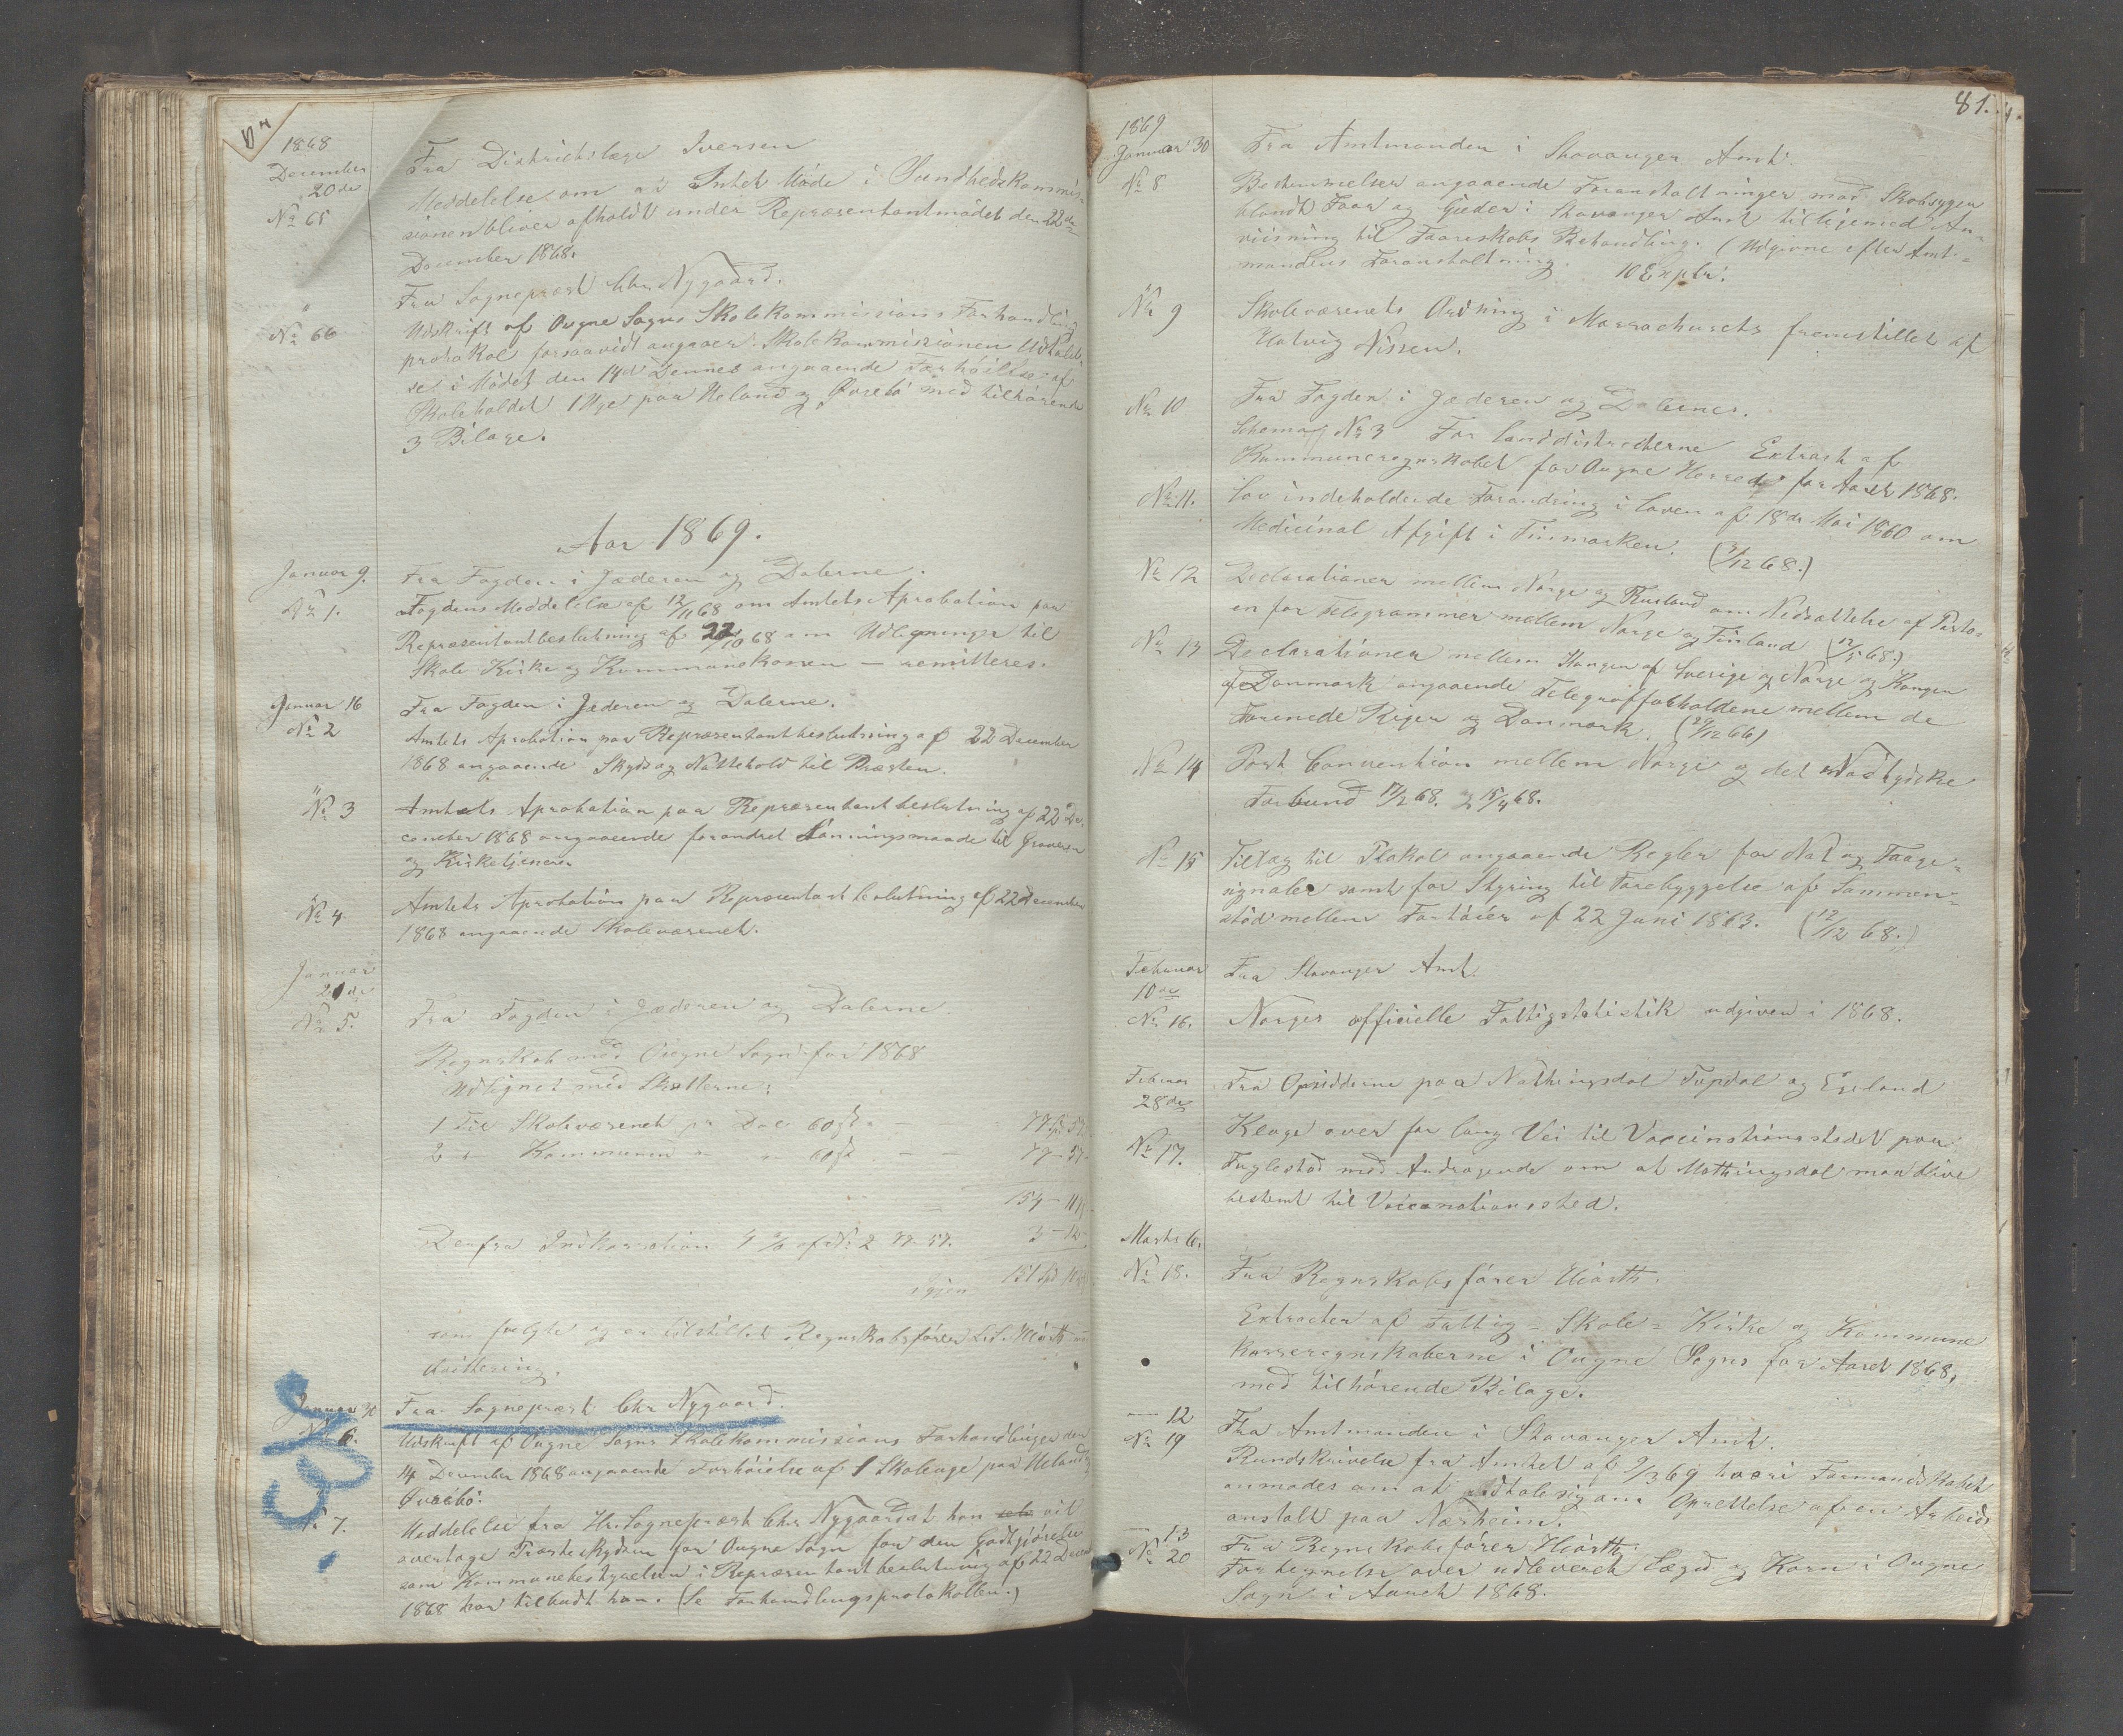 1868
December
20de
No 65
Fra Distriktslæge Iversen
Meddelelse om at Intet Möde i Sundhedskommis-
sionen bliver afholdt under Repræsentantmödet den 22de
December 1868.
"
No 66
Fra Sognepræst Chr. Nygaard.
Udskrift af Ougne Sogns Skolekommissions Forhandlings
protokol forsaavidt angaaer Skolekommissionen Udtalel-
se i Mödet den 14de Dennes angaaende Forhöielse af
Skoleholdet 1 Uge paa Ueland og Övrebö med tilhörende
3 Bilage.
Aar 1869.
Januar 9.
No 1.
Fra Fogden i Jæderen og Dalerne.
Fogdens Meddelelse af 12/11 68 om Amtets Aprobation paa
Repræsentantbeslutning af 22/10 68 om Udligninger til
Skole Kirke og Kommunekassen – remitteres.
Januar 16
No 2
Fra Fogden i Jæderen og Dalerne.
Amtets Aprobation paa Repræsentantbeslutning af 22 December
1868 angaaende Skyds og Nattehold til Præsten.
"
No 3
Amtets Aprobation paa Repræsentantbeslutning af 22 De-
cember 1868 angaaende forandret Lønningsmaade til Graveren
og Kirketjeneren
"
No 4
Amtets Aprobation paa Repræsentantbeslutning af 22 December
1868 angaaende Skolevæsenet.
Januar
21de
No 5.
Fra Fogden i Jæderen og Dalerne.
Regnskab med Ougne Sogn for 1868
Udlignet med Skatterne:
1 Til Skolevæsenet pr Daler 60 β – – 77 – 57
2 " Kommunen " " 60 β – – 77 – 57
154 –
Derfra Indkassation 4 % af No 2 77. 57. 3 – 12
igjen 151 Spd
som fulgte og er tilstillet Regnskabsfører Hiörth
Qvittering.
Januar 30
No 6.
Fra Sognepræst Chr Nygaard.
Udskrift af Ougne Sogns Skolekommissions Forhandlinger den
14 December 1868 angaaende Forhöielse af 1 Skoleuge paa Ueland og
Övrebö.
No 7.
Meddelelse fra Hr. Sognepræst Chr. Nygaard at han vil
overtage Præsteskydsen for Ougne Sogn for den Godtgjörelse
som Kommunebestyrelsen i Repræsentantbeslutning af 22 Decem
1868 har tilbudt ham. (Se Forhandlingsprotokollen.)
81.
1869
Januar 30
No 8
Fra Amtmanden i Stavanger Amt.
Bestemmelser angaaende Foranstaltninger mod Skabsygen
blandt Faar og Gjeder i Stavanger Amt tilligemed An-
viisning til Faareskabs Behandling. (Udgivne efter Amt-
mandens Foranstaltning. 10 Explr.
"
No 9
Skolevæsenets Ordning i Massachusets fremstillet af
Hatvig Nissen.
No 10
Fra Fogden i Jæderen og Dalernes.
Schema No 3 For Landdistricterne Extrakt af
Kommuneregnskabet for Ougne Herred for Aaret 1868.
No 11.
Lov indeholdende Forandring i Loven af 18de Mai 1860 om
Medicinal Afgift i Finmarken. (3/12 68.)
No 12
Declarationer mellem Norge og Rusland om Nedsættelse af Porto-
en for Telegrammer mellem Norge og Finland (12/5 68)
No 13
Declarationer mellem Kongen af Sverige og Norge og Kongen
af Danmark angaaende Telegrafforholdene mellem de
Forenede Riger og Danmark. (29/12 66)
No 14
Post Convention mellem Norge og det Nordtydske
Forbund 17/2 68. og 15/4 68.
No 15
Tillæg til Plakat angaaende Regler for Nat og Taage-
signaler samt for Styring til Forebyggelse af Sammen-
stöd mellem Fartöier af 22 Juni 1863. (12/12 68.)
Februar
10de
No 16.
Fra Stavanger Amt.
Norges officielle Fattigstatistik udgiven i 1868.
Februar
28de
No 17.
Fra Opsidderne paa Mathingsdal Tupdal og Egeland
Klage over for lang Vei til Vaccinationsstedet paa
Fuglestad med Andragende om at Mathingsdal maa blive
bestemt til Vaccinationssted.
Marts 6.
No 18.
Fra Regnskabsfører Hiörth.
Extracter af Fattig- Skole- Kirke og Kommune
kasseregnskaberne i Ougne Sogn for Aaret 1868,
med tilhörende Bilage.
— 12
No 19
Fra Amtmanden i Stavanger Amt.
Rundskrivelse fra Amtet af 9/3 69 hvori Formandskabet
anmodes om at udtale sig om Oprettelse af en Arbeids
anstalt paa Nærheim.
— 13
No 20
Fra Regnskabsfører Hiörth.
Fortegnelse over udleveret Lægd og Korn i Ougne
Sogn i Aaret 1868.